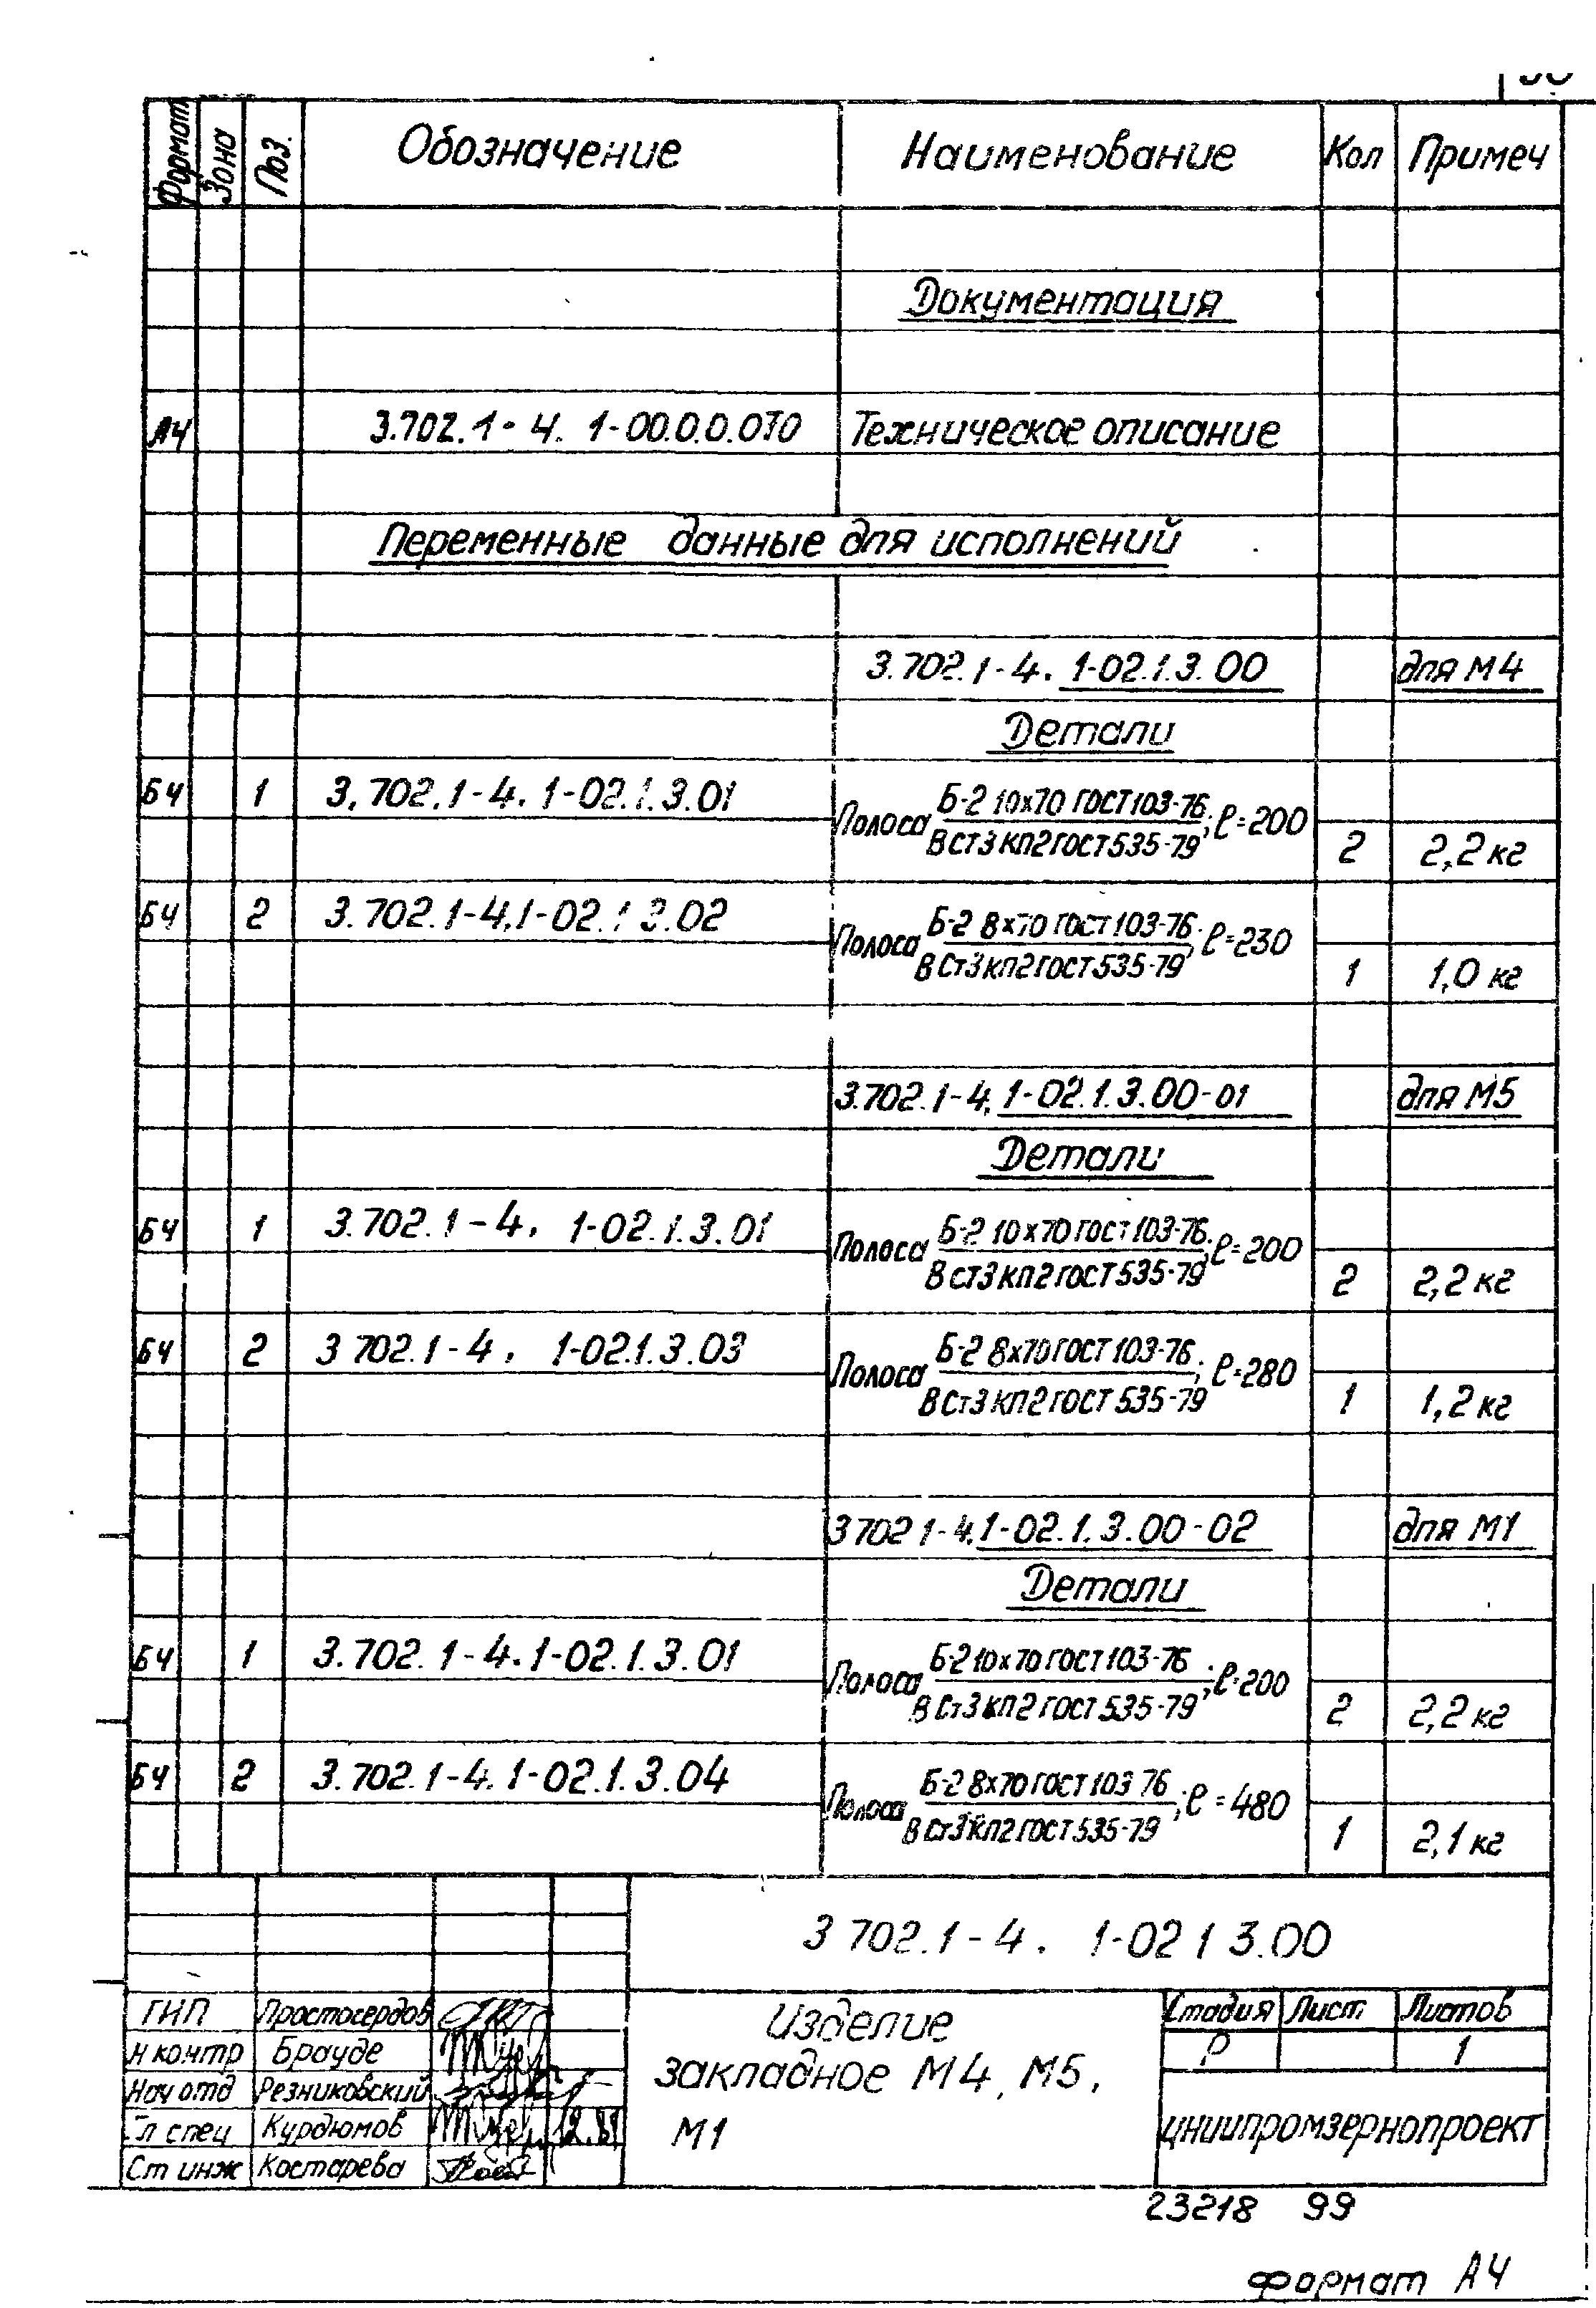 Формат Зона Поз. Обозначение Наименование Кол Примеч
Документация
А4 3.702.1-4. 1-00.0.0.0Т0 Техническое описание
Переменные данные для исполнений
3.702.1-4. 1-02.1.3.00 для М4
Детали
БЧ 1 3.702.1-4. 1-02.1.3.01 Полоса Б-2 10х70 ГОСТ 103-76; ℓ=200
В Ст3 кп2 ГОСТ 535-79 2 2,2 кг
БЧ 2 3.702.1-4.1-02.1.3.02 Полоса Б-2 8х70 ГОСТ 103-76; ℓ=230
В Ст3 кп2 ГОСТ 535-79 1 1,0 кг
3.702.1-4. 1-02.1.3.00-01 для М5
Детали
БЧ 1 3.702.1-4. 1-02.1.3.01 Полоса Б-2 10х70 ГОСТ 103-76; ℓ=200
В Ст3 кп2 ГОСТ 535-79 2 2,2 кг
БЧ 2 3 702.1-4. 1-02.1.3.03 Полоса Б-2 8х70 ГОСТ 103-76; ℓ=280
В Ст3 кп2 ГОСТ 535-79 1 1,2 кг
3 702 1-4. 1-02.1.3.00-02 для М1
Детали
БЧ 1 3.702.1-4.1-02.1.3.01 Полоса Б-2 10х70 ГОСТ 103-76; ℓ=200
В Ст3 кп2 ГОСТ 535-79 2 2,2 кг
БЧ 2 3.702.1-4.1-02.1.3.04 Полоса Б-2 8х70 ГОСТ 103 76; ℓ=480
В Ст3 кп2 ГОСТ 535-79 1 2,1 кг
3 702.1-4. 1-02 1 3.00
ГИП Простосердов
Н контр Брауде
Нач отд Резниковский
Гл спец Курдюмов
Ст инж Костарева
Изделие
закладное М4, М5,
М1
Стадия Лист Листов
Р 1
ЦНИИПРОМЗЕРНОПРОЕКТ
23218 99
формат А4